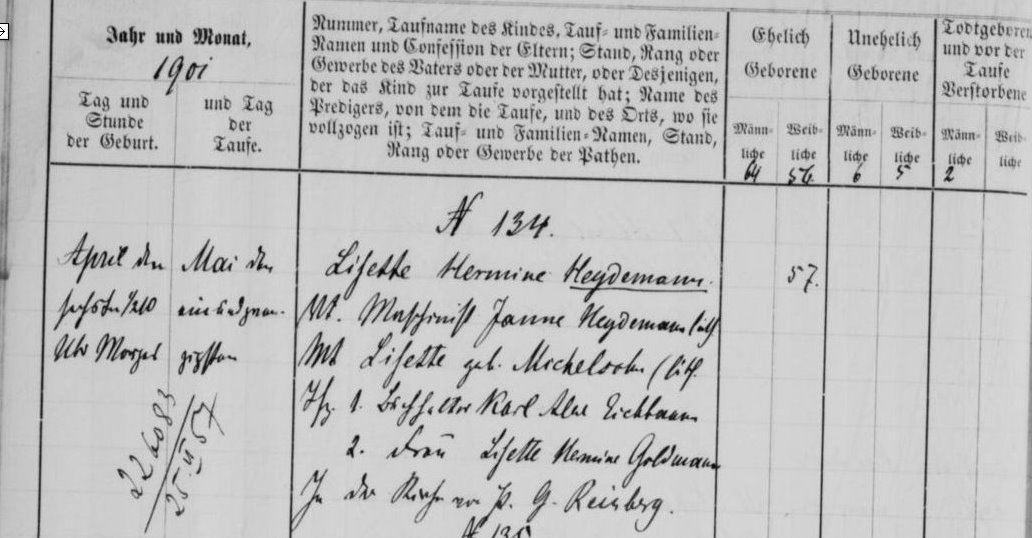 Jahr und Monat,
1901
Tag und
Stunde
der Geburt.
und Tag
der
Taufe.
Nummer, Taufname des Kindes, Tauf- und Familien-
Namen und Confession der Eltern; Stand, Rang oder
Gewerbe des Vaters oder der Mutter, oder Desjenigen,
der das Kind zur Taufe vorgestellt hat; Name des
Predigers, von dem die Taufe, und des Orts, wo sie
vollzogen ist; Tauf- und Familien-Namen, Stand,
Rang oder Gewerbe der Pathen.
Ehelich
Geborene
Männ-
liche
64
Weib-
liche
56
Unehelich
Geborene
Männ-
liche
6
Weib-
liche
5
Todtgeboren
und vor der
Taufe
Verstorbene
Männ-
liche
2
Weib-
liche
N 134.
April den
sechsten 1/2 10
Uhr Morgens
Mai den
einundzwan-
zigsten
Lisette Hermine Heydemann.
57.
Vt. Maschinist Janne Heydemann luth
Mt Lisette geb. Michelsohn (luth.
1. Buchhalter Karl Eichbaum
2. Frau Lisette Hermine Goldmann
In der Kirche von P. G. Reinberg.
226083
25.II 57
N 135